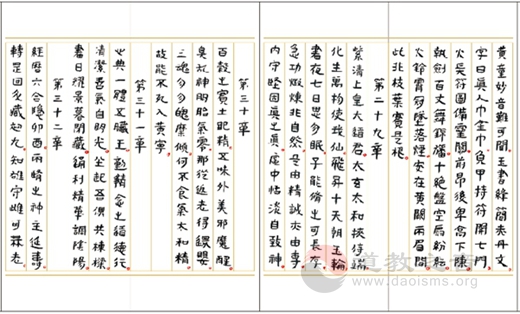 黄童妙音難可聞玉書絳簡赤丹文
字曰真人巾金巾負甲持符開七門
火兵符圖備靈關前昂後卑高下陳
執劍百丈舞錦幡十絕盤空扇紛紜
火鈴冠霄墜落煙安在黃闕兩眉間
此非枝葉實是根
第二十九章
紫清上皇大道君太玄太和俠侍端
化生萬物使我仙飛昇十天朝玉輪
晝夜七日思勿眠子能備之可長存
急功煅煉非自然是由精誠亦由專
內守堅固真之真虛中恬淡自致神
第三十章
百穀之實土地精五味外美邪魔腥
臭亂神明胎氣零那從返老得還嬰
三魂勿勿魄糜傾何不食氣太和精
故能不死入黃寧
第三十一章
心典一體五臟王動靜念之道德行
清潔善氣自明光坐起吾俱共棟樑
晝日耀景暮閉藏通利精華調陰陽
第三十二章
經歷六合隱卯酉兩腎之神主延壽
轉降適斗藏初九知雄守雌可無老
道教之音
www.daoisms.org